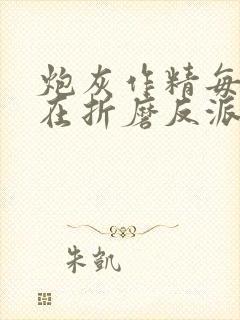 炮灰作精每
在折磨反派
朱凯